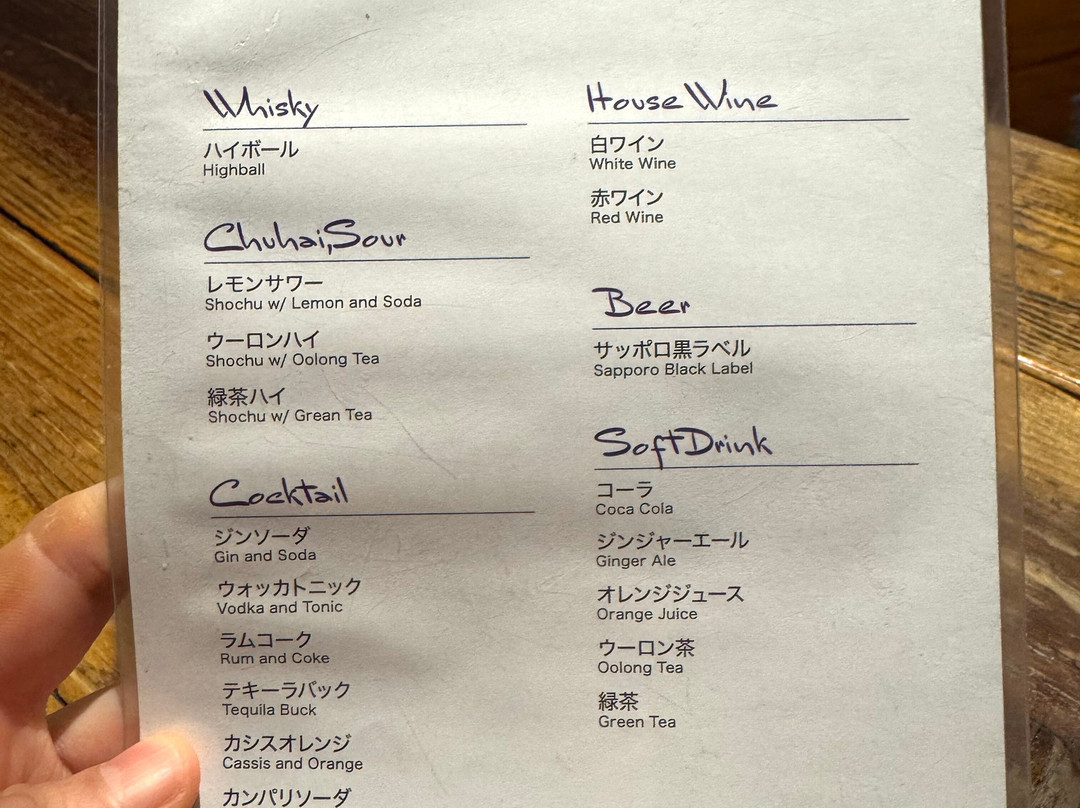 Whisky
ハイボール
Highball
Chuhai,Sour
レモンサワー
Shochu w/ Lemon and Soda
ウーロンハイ
Shochu w/ Oolong Tea
緑茶ハイ
Shochu w/ Grean Tea
Cocktail
ジンソーダ
Gin and Soda
ウォッカトニック
Vodka and Tonic
ラムコーク
Rum and Coke
テキーラバック
Tequila Buck
カシスオレンジ
Cassis and Orange
カンパリソーダ
House Wine
白ワイン
White Wine
赤ワイン
Red Wine
Beer
サッポロ黒ラベル
Sapporo Black Label
Soft Drink
コーラ
Coca Cola
ジンジャーエール
Ginger Ale
オレンジジュース
Orange Juice
ウーロン茶
Oolong Tea
緑茶
Green Tea